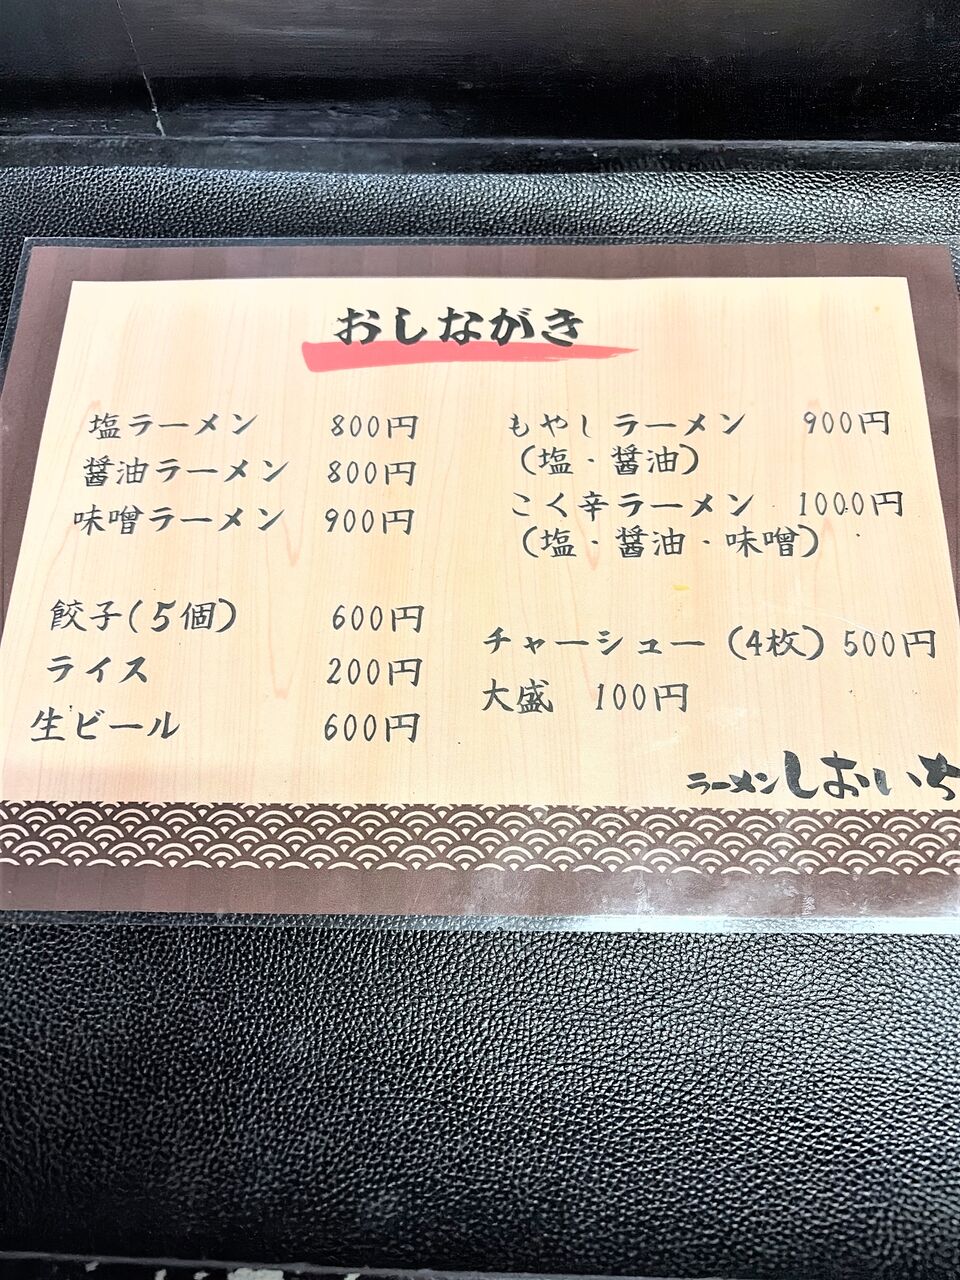 おしながき
塩ラーメン 800円
醤油ラーメン 800円
味噌ラーメン 900円
餃子(5個) 600円
ライス 200円
生ビール 600円
もやしラーメン 900円
(塩・醤油)
こく辛ラーメン 1000円
(塩・醤油・味噌)
チャーシュー(4枚) 500円
大盛 100円
ラーメンしおいち